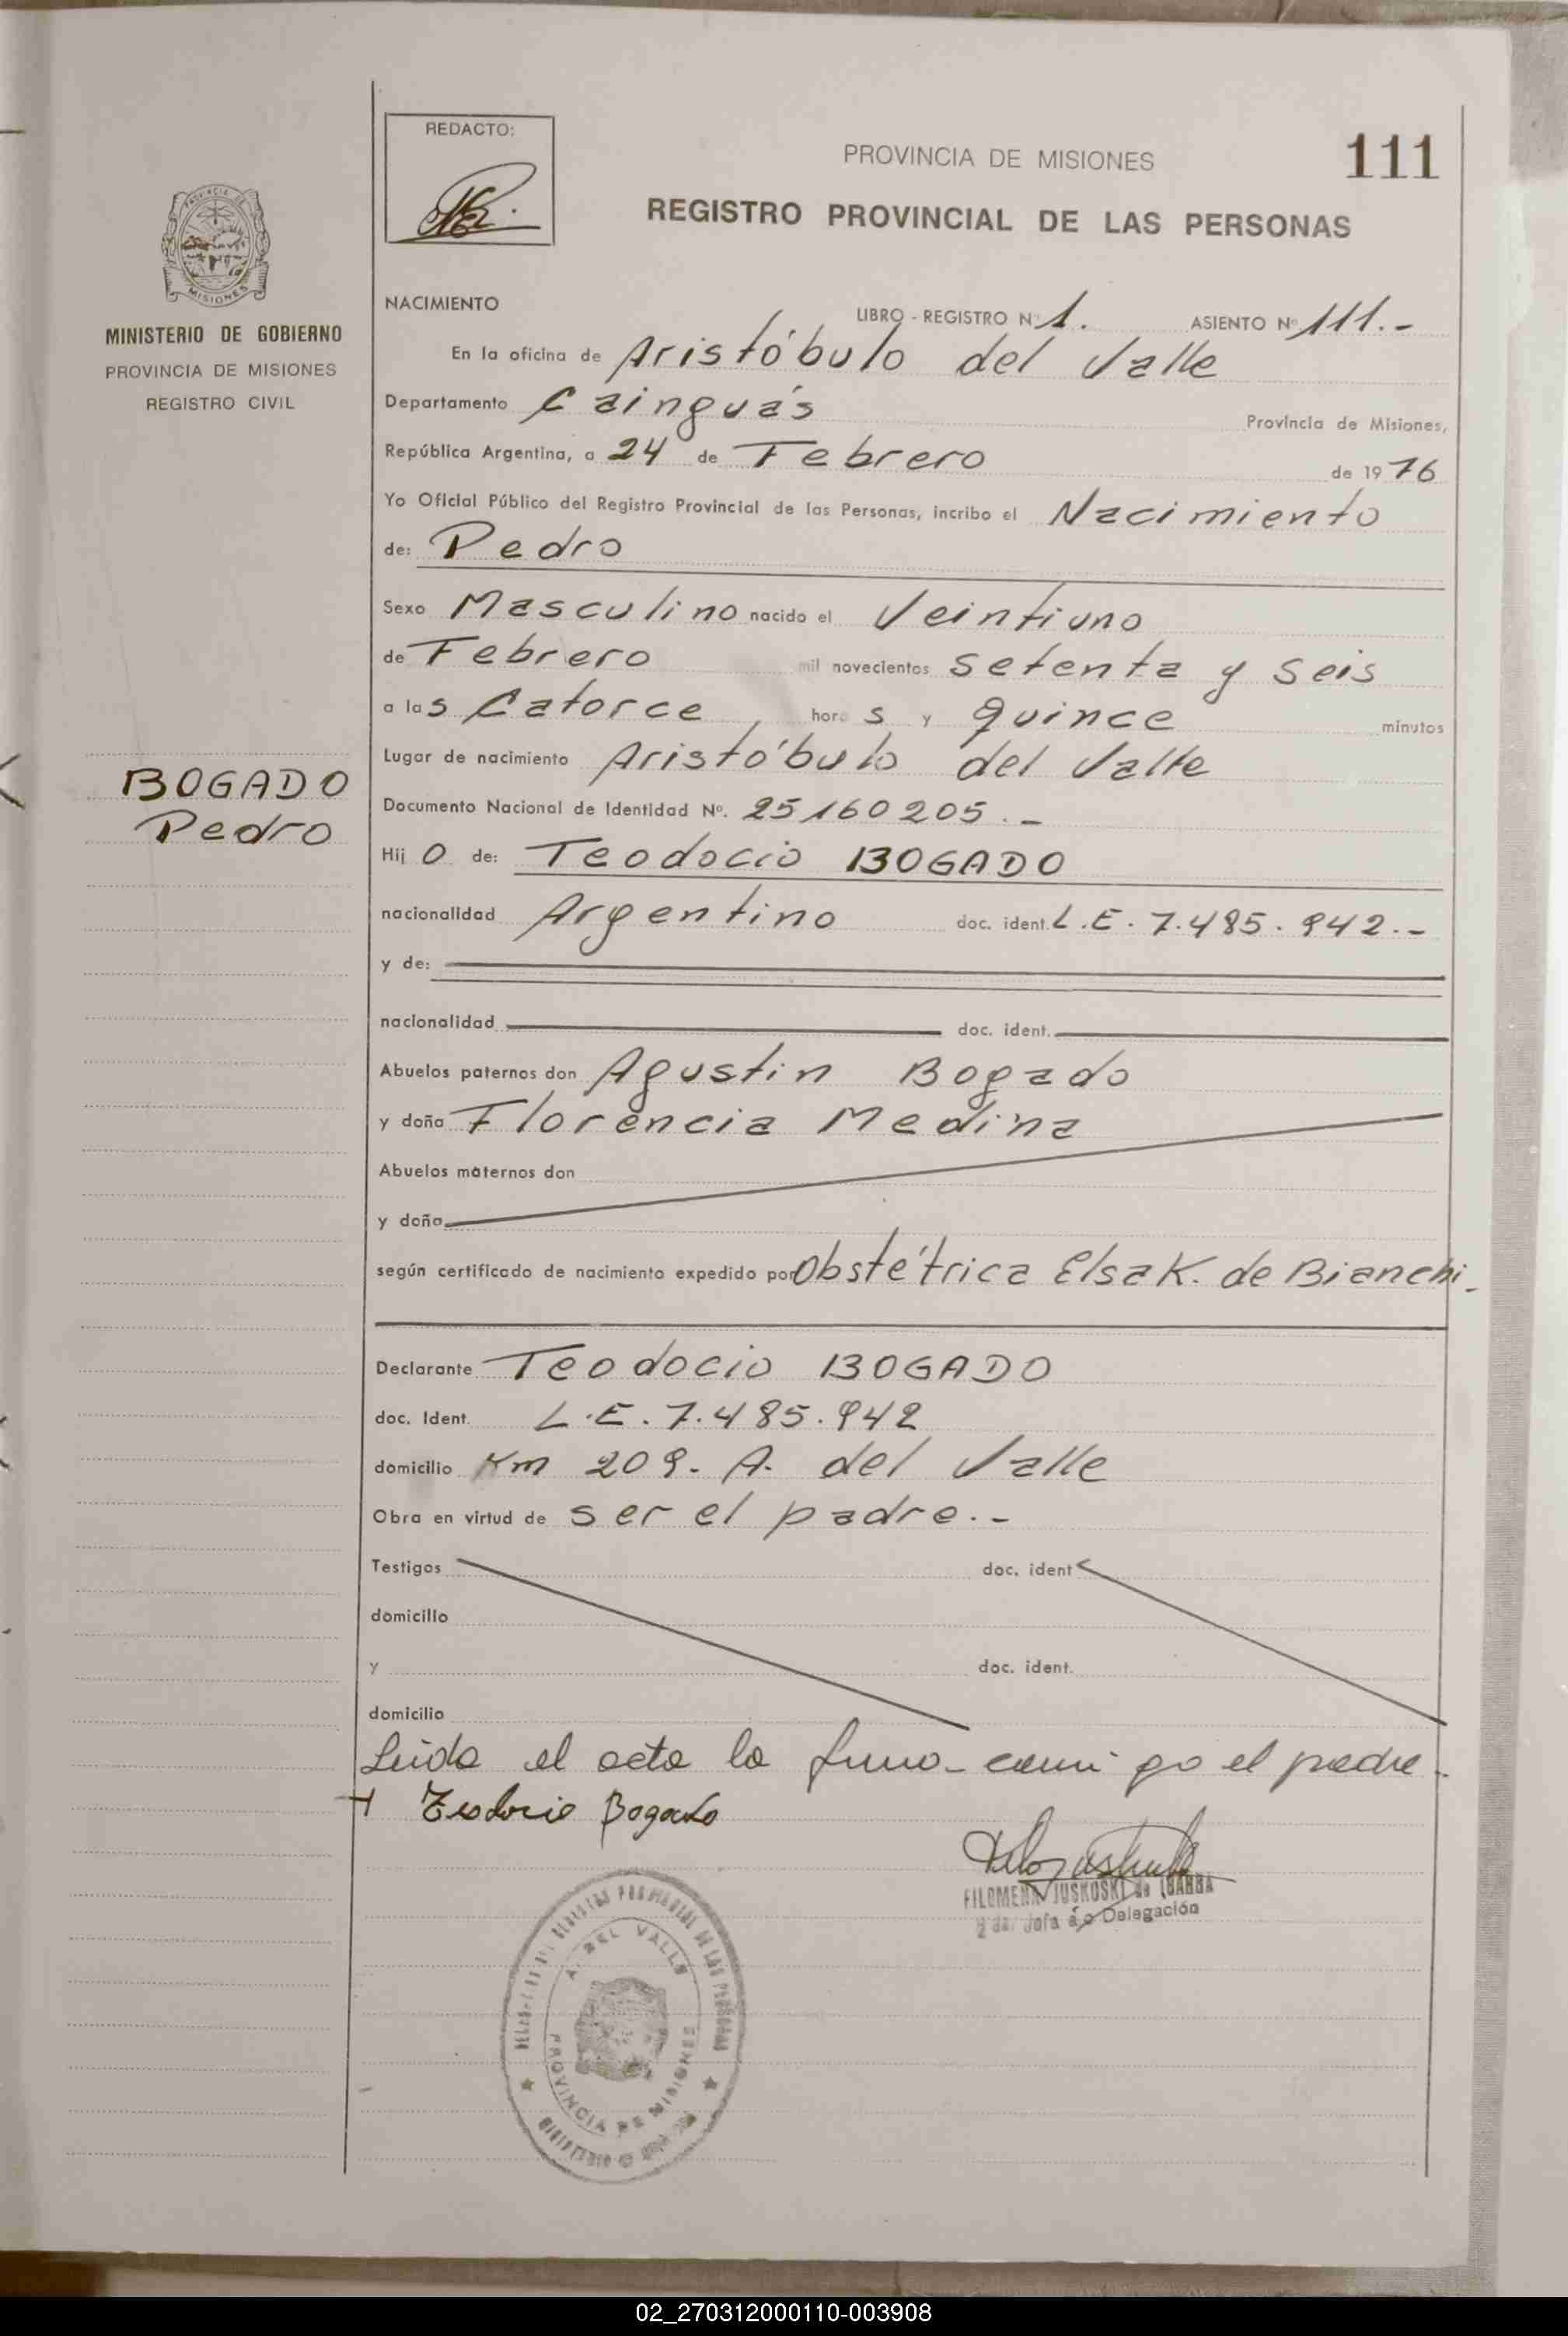 REDACTO:
PROVINCIA DE MISIONES
111
REGISTRO PROVINCIAL DE LAS PERSONAS
MISIONES
MINISTERIO DE GOBIERNO
PROVINCIA DE MISIONES
REGISTRO CIVIL
NACIMIENTO
LIBRO - REGISTRO Nº 1. ASIENTO Nº 111.-
En la oficina de Aristóbulo del Valle
Departamento Cainguás Provincia de Misiones,
República Argentina, a 24 de Febrero de 1976
Yo Oficial Público del Registro Provincial de las Personas, incribo el Nacimiento
de: Pedro
Sexo Masculino nacido el Veintiuno
de Febrero mil novecientos setenta y seis
a las Catorce, horas y quince minutos
Lugar de nacimiento Aristóbulo del Valle
BOGADO
Pedro
Documento Nacional de Identidad Nº. 25160205.-
Hijo de: Teodocio BOGADO
nacionalidad Argentino doc. ident. L.E. 7.485.942.-
y de:
nacionalidad doc. ident.
Abuelos paternos don Agustin Bogado
y doña Florencia Medina
Abuelos maternos don
y doña
según certificado de nacimiento expedido por Obstétrica Elsa K. de Bianchi.-
Declarante Teodocio BOGADO
doc. Ident. L.E. 7.485.942
domicilio Km 209. A. del Valle
Obra en virtud de ser el padre.-
Testigos doc. ident
domicilio
y doc. ident.
domicilio
Leida el acta la firma conmigo el padre.
Teodocio Bogado
FILOMENA JUSKOSKI de IBARRA
2da. Jefa de Delegación
REGISTRO PROVINCIAL DE LAS PERSONAS
A. DEL VALLE
PROVINCIA DE MISIONES
02_270312000110-003908